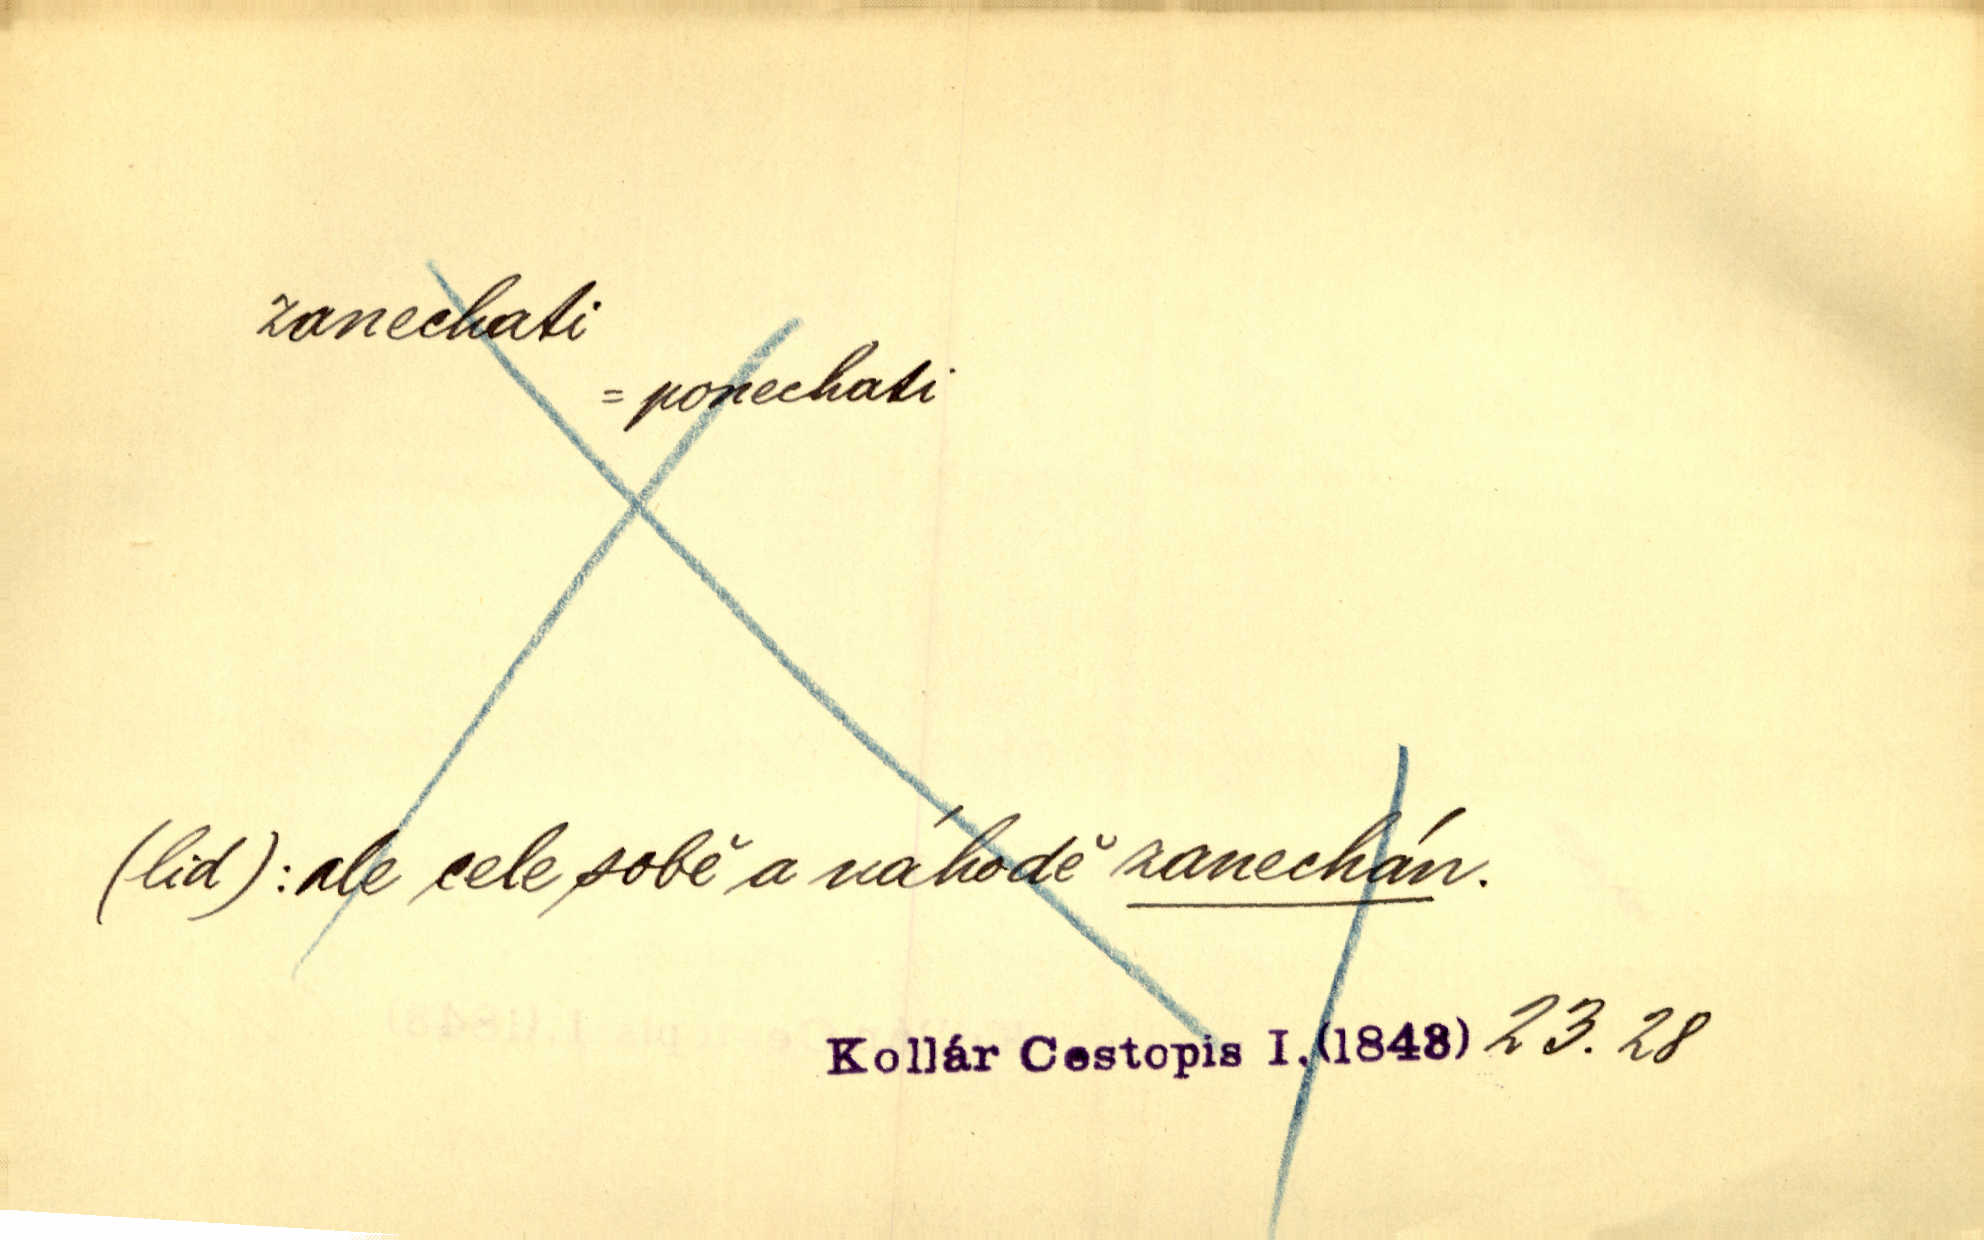 zanechati
= ponechati
(lid): ale cele sobě a náhodě zanechán.
Kollár Cestopis I.(1843) 23. 28